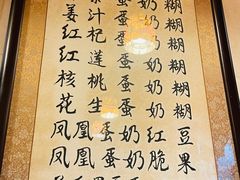 姜汁蛋奶糊
红杞蛋奶糊
红莲蛋奶糊
核桃蛋奶糊
花生蛋奶糊
凤凰蛋奶红豆
凤凰蛋奶脆果